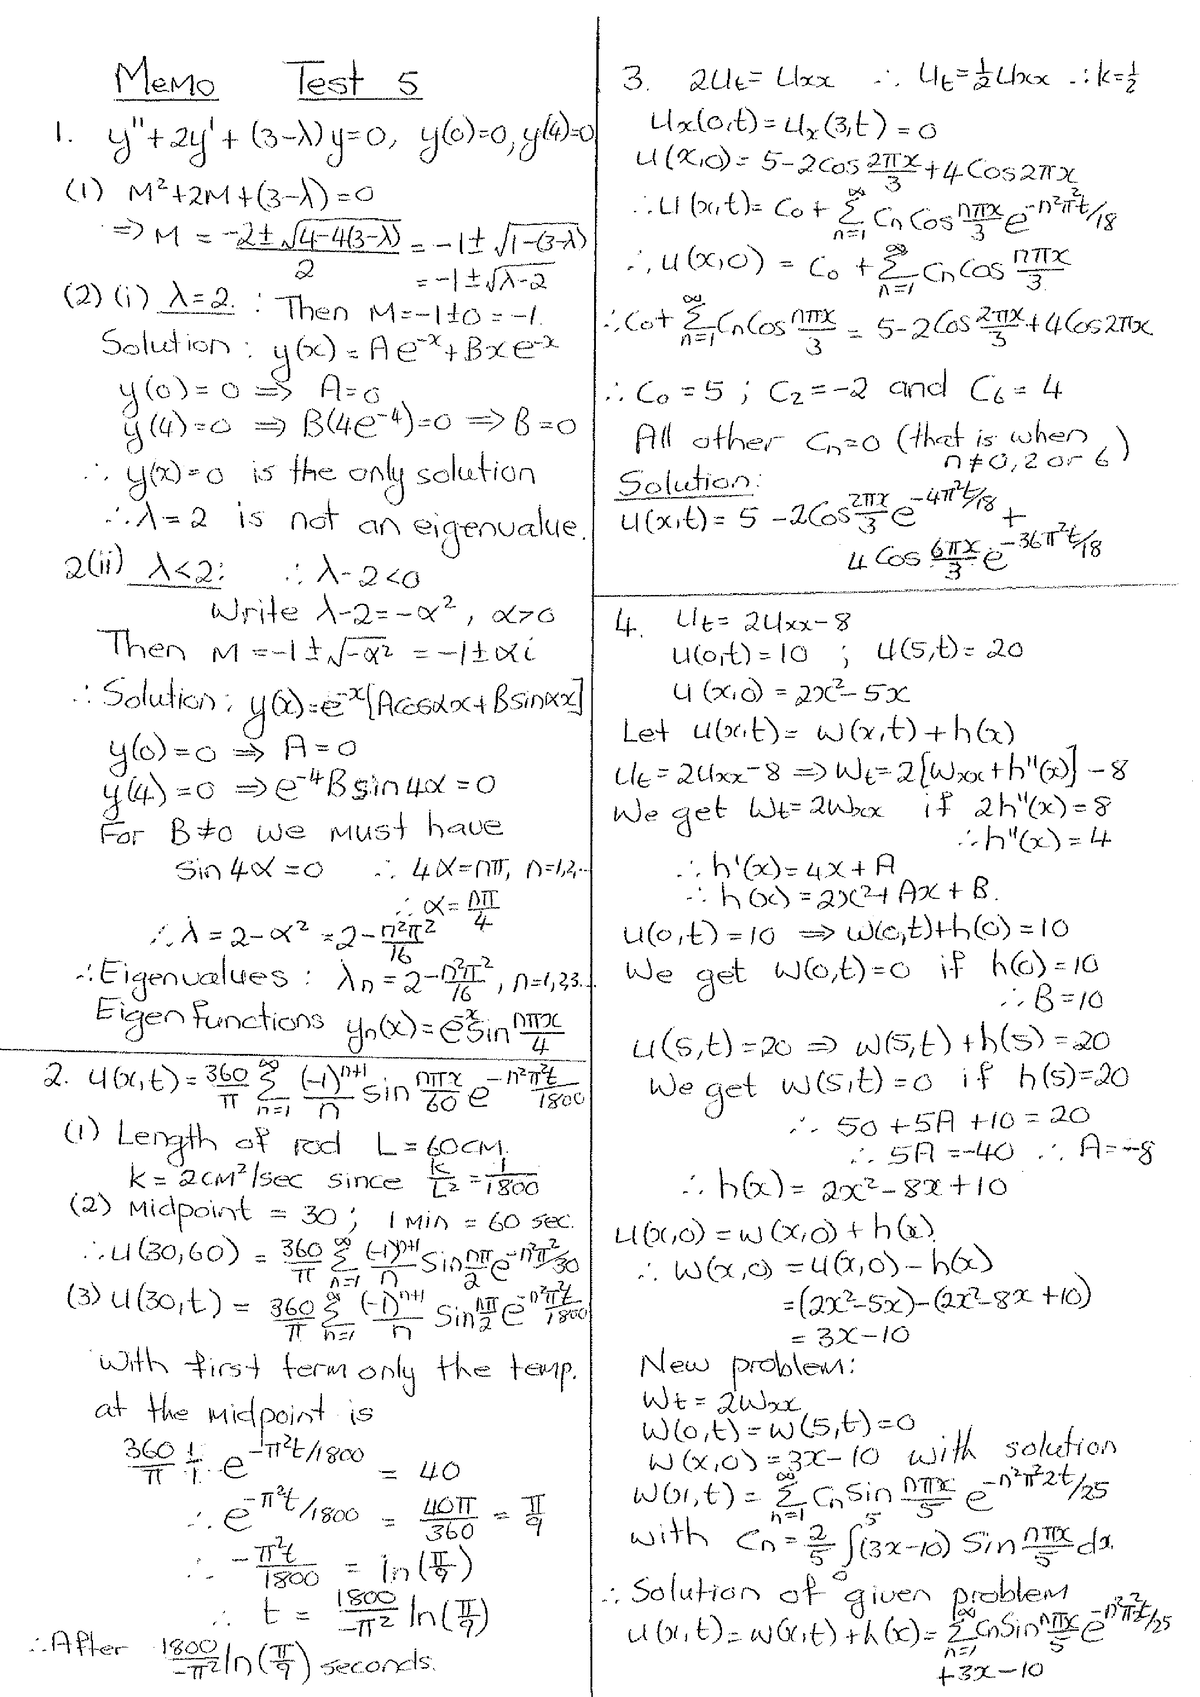 Memo Test 5
1. y'' + 2y' + (3-λ)y = 0, y(0)=0, y(4)=0
(1) M² + 2M + (3-λ) = 0
⇒ M = (-2 ± √(4-4(3-λ)))/2 = -1 ± √(1-(3-λ))
= -1 ± √(λ-2)
(2) (i) λ=2. : Then M = -1±0 = -1.
Solution : y(x) = Ae^{-x} + Bxe^{-x}
y(0) = 0 ⇒ A = 0
y(4) = 0 ⇒ B(4e^{-4}) = 0 ⇒ B = 0
∴ y(x) = 0 is the only solution
∴ λ = 2 is not an eigenvalue.
2(ii) λ<2: ∴ λ-2<0
Write λ-2 = -α², α>0
Then M = -1 ± √(-α²) = -1 ± αi
∴ Solution : y(x) = e^{-x}[Acosαx + Bsinαx]
y(0) = 0 ⇒ A = 0
y(4) = 0 ⇒ e^{-4}B sin 4α = 0
For B≠0 we must have
sin 4α = 0 ∴ 4α = nπ, n=1,2,..
∴ α = nπ/4
∴ λ = 2-α² = 2 - n²π²/16
∴ Eigenvalues : λn = 2 - n²π²/16, n=1,2,3...
Eigenfunctions yn(x) = e^{-x} sin nπx/4
2. u(x,t) = 360/π Σ_{n=1}^{∞} (-1)^{n+1}/n sin nπx/60 e^{-n²π²t/1800}
(1) Length of rod L = 60cm.
k = 2cm²/sec since k/L² = 1/1800
(2) Midpoint = 30 ; 1 min = 60 sec.
∴ u(30,60) = 360/π Σ_{n=1}^{∞} (-1)^{n+1}/n Sin nπ/2 e^{-n²π²/30}
(3) u(30,t) = 360/π Σ_{n=1}^{∞} (-1)^{n+1}/n Sin nπ/2 e^{-n²π²t/1800}
With first term only the temp.
at the midpoint is
360/π 1/1 e^{-π²t/1800} = 40
∴ e^{-π²t/1800} = 40π/360 = π/9
∴ -π²t/1800 = ln(π/9)
∴ t = 1800/-π² ln(π/9)
∴ After 1800/-π² ln(π/9) seconds.
3. 2ut = uxx ∴ ut = ½uxx ∴ k=½
ux(0,t) = ux(3,t) = 0
u(x,0) = 5-2cos 2πx/3 + 4Cos2πx
∴ u(x,t) = C0 + Σ_{n=1}^{∞} Cn Cos nπx/3 e^{-n²π²t/18}
∴ u(x,0) = C0 + Σ_{n=1}^{∞} Cn Cos nπx/3
∴ C0 + Σ_{n=1}^{∞} Cn Cos nπx/3 = 5-2Cos 2πx/3 + 4Cos2πx
∴ C0 = 5 ; C2 = -2 and C6 = 4
All other Cn=0 (that is when
n≠0, 2 or 6)
Solution:
u(x,t) = 5 -2Cos 2πx/3 e^{-4π²t/18} +
4 Cos 6πx/3 e^{-36π²t/18}
4. ut = 2uxx-8
u(0,t) = 10 ; u(5,t) = 20
u(x,0) = 2x²-5x
Let u(x,t) = w(x,t) + h(x)
ut = 2uxx-8 ⇒ wt = 2[wxx + h''(x)] - 8
We get wt = 2wxx if 2h''(x) = 8
∴ h''(x) = 4
∴ h'(x) = 4x + A
∴ h(x) = 2x² + Ax + B.
u(0,t) = 10 ⇒ w(0,t)+h(0) = 10
We get w(0,t)=0 if h(0) = 10
∴ B = 10
u(5,t) = 20 ⇒ w(5,t) + h(5) = 20
We get w(5,t) = 0 if h(5)=20
∴ 50 + 5A + 10 = 20
∴ 5A = -40 ∴ A = -8
∴ h(x) = 2x²-8x+10
u(x,0) = w(x,0) + h(x).
∴ w(x,0) = u(x,0) - h(x)
= (2x²-5x)-(2x²-8x+10)
= 3x-10
New problem:
wt = 2wxx
w(0,t) = w(5,t) = 0
w(x,0) = 3x-10 with solution
w(x,t) = Σ_{n=1}^{∞} Cn Sin nπx/5 e^{-n²π²2t/25}
with Cn = 2/5 ∫_0^5 (3x-10) Sin nπx/5 dx.
∴ Solution of given problem
u(x,t) = w(x,t) + h(x) = Σ_{n=1}^{∞} Cn Sin nπx/5 e^{-n²π²2t/25}
+3x-10